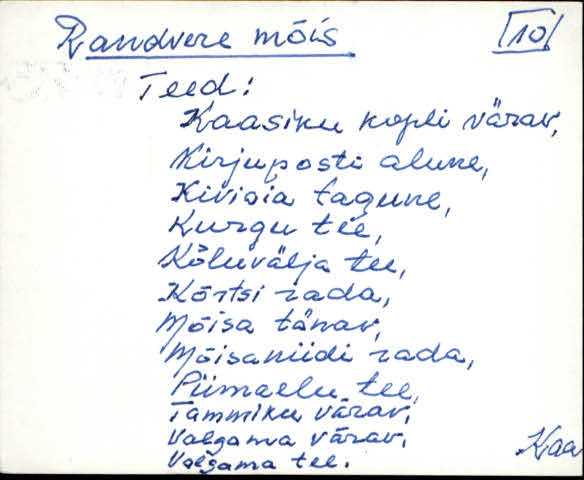 Randvere mõis 10
Teed:
Kaasiku kopli värav,
Kirjuposti alune,
Kivioia tagune,
Kurgu tee,
Kõluvälja tee,
Kõrtsi rada,
Mõisa tänav,
Mõisaniidi rada,
Piimaelu tee,
Tammiku värav,
Valgama värav,
Valgama tee.
Kaa